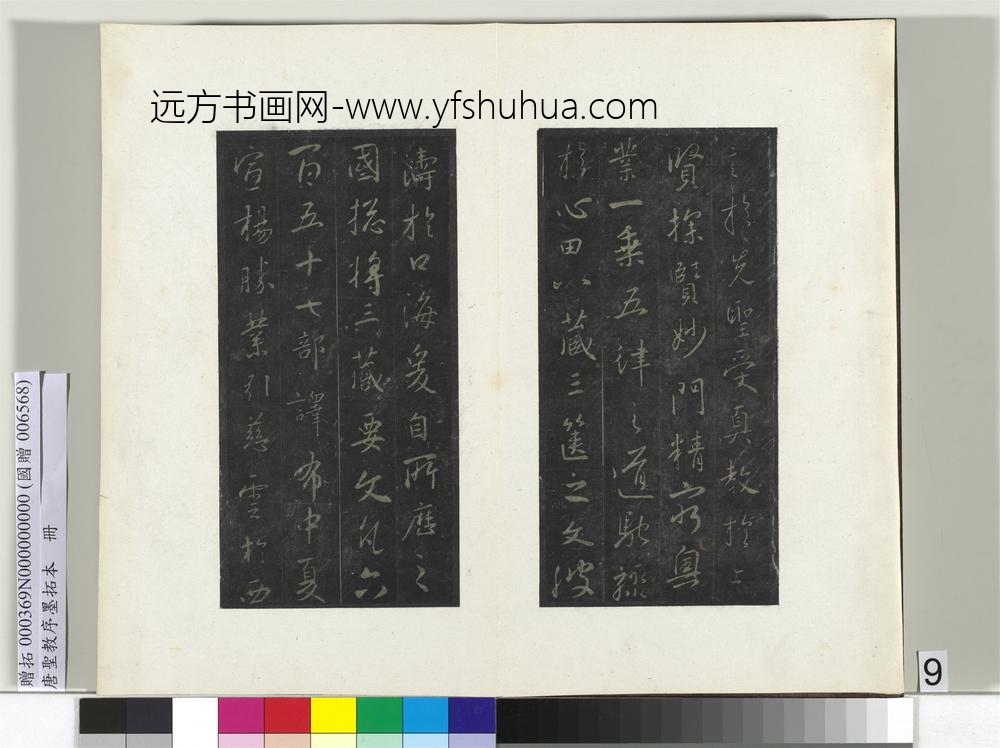 远方书画网-www.yfshuhua.com
之於先聖受真教於上
賢探賾妙門精窮奧
業一乘五律之道馳驟
於心田八藏三篋之文波
濤於口海爰自所歷之
國總將三藏要文凡六
百五十七部譯布中夏
宣揚勝業引慈雲於西
贈拓 000369N000000000 (國贈 006568)
唐聖教序墨拓本 冊
9